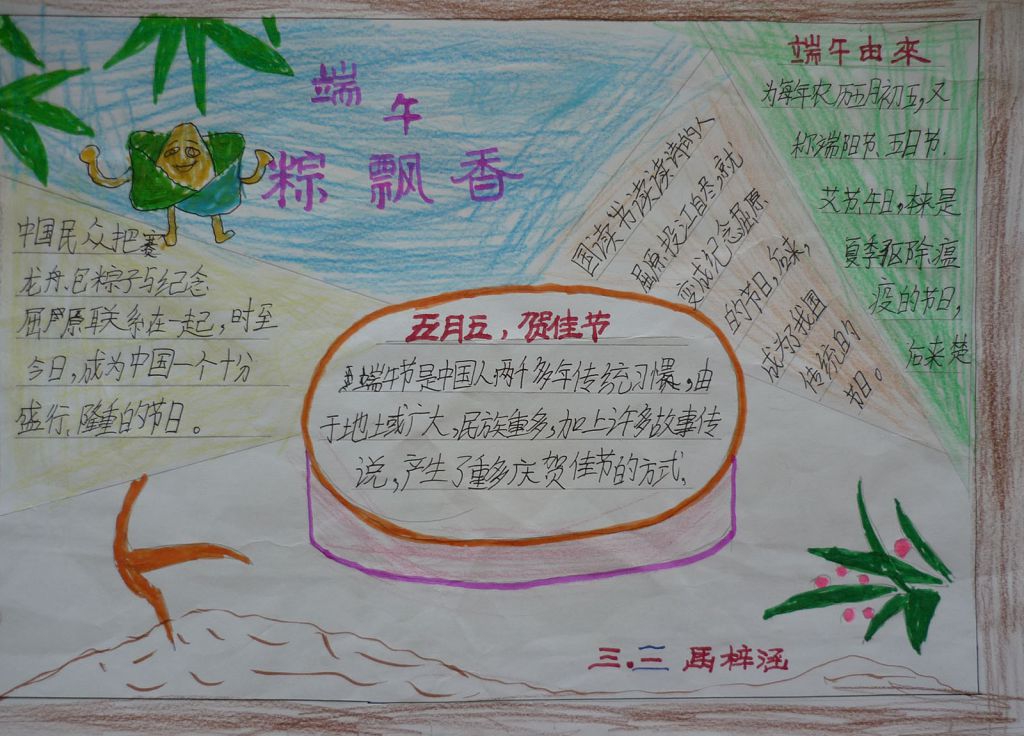 端午
粽飘香
中国民众把赛
龙舟、包粽子与纪念
屈原联系在一起,时至
今日,成为中国一个十分
盛行、隆重的节日。
五月五,贺佳节
端午节是中国人两千多年传统习惯,由
于地土或广大,民族重多,加上许多故事传
说,产生了重多庆贺佳节的方式,
端午由來
为每年农历五月初五,又
称端阳节、五日节.
艾节、午日,本来是
夏季驱除瘟
疫的节日,
后来楚
国读书读读诗的人
屈原投江自尽,就
变成纪念屈原
的节日,后来,
成为了我国
传统的
节日。
三.三 禹梓涵